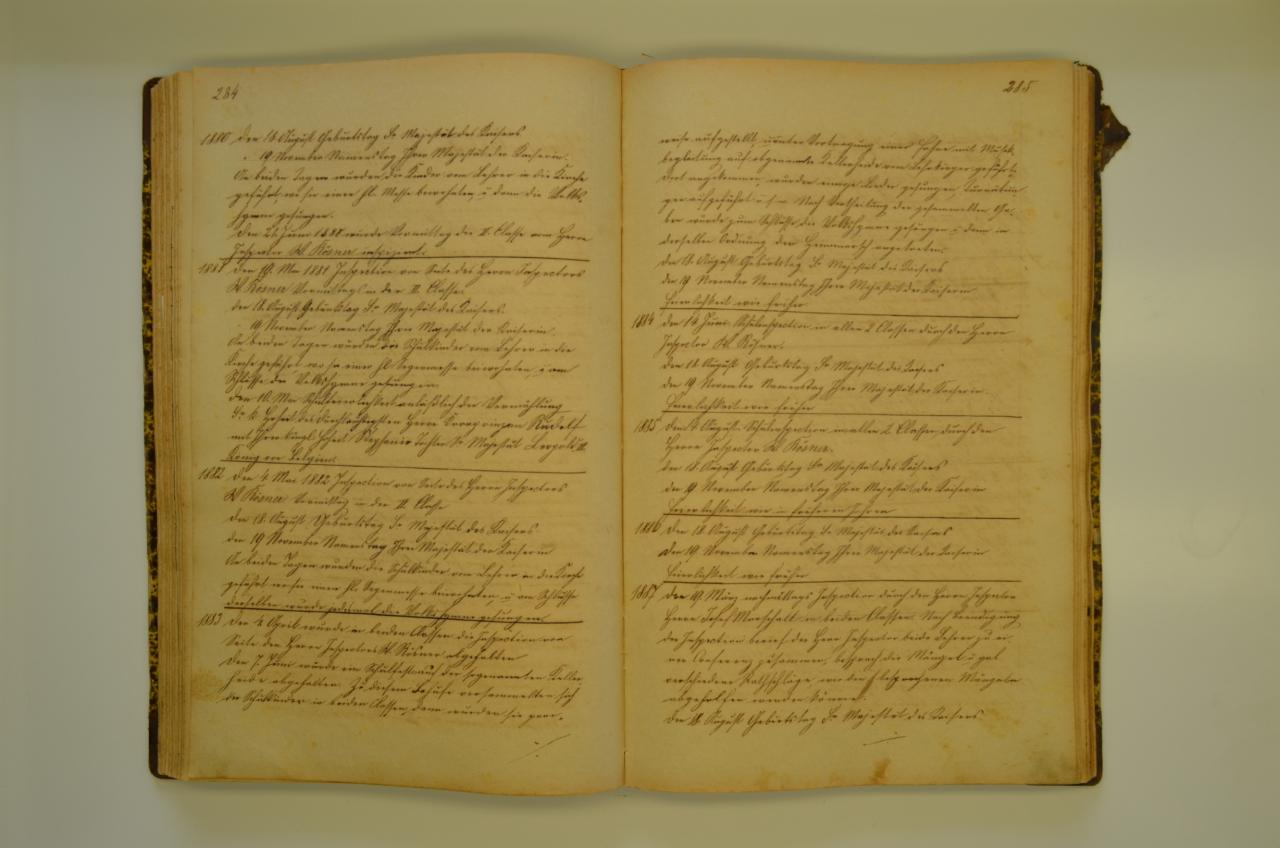 284
1880 Den 18. August Geburtstag Sr Majestät des Kaisers
" 19 November Namenstag Ihrer Majestät der Kaiserin.
An beiden Tagen wurden die Kinder vom Lehrer in die Kirche
geführt, wo sie einer hl. Messe beiwohnten, u dann die Volks-
hymne gesungen.
Den 21. Juni 1880 wurde Vormittag die II. Classe vom Herrn
Inspector W. Kösner inspizirt.
1881 Den 19. Mai 1881 Inspection von Seite des Herrn Inspectors
W Kösner Vormittags in der II. Classe.
Den 18. August Geburtstag Sr Majestät des Kaisers.
" 19 November Namenstag Ihrer Majestät der Kaiserin.
An beiden Tagen wurden die Schulkinder vom Lehrer in die
Kirche geführt wo sie einer hl. Segenmesse beiwohnten, u am
Schlusse die Volkshymne gesungen.
Den 10. Mai Schulfeierlichkeit anläßlich der Vermählung
Sr k. Hoheit des Durchlauchtigsten Herrn Kronprinzen Rudolf
mit Ihrer königl. Hoheit Stephanie Tochter Sr Majestät Leopold II.
König von Belgien.
1882 Den 4. Mai 1882 Inspection von Seite des Herrn Inspectors
W Kösner Vormittag in der II. Classe
Den 18. August Geburtstag Sr Majestät des Kaisers
Den 19 November Namenstag Ihrer Majestät der Kaiserin
An beiden Tagen wurden die Schulkinder vom Lehrer in die Kirche
geführt wo sie einer hl. Segenmesse beiwohnten, u am Schlusse
derselben wurde jedesmal die Volkshymne gesungen.
1883 Den 4. April wurde in beiden Classen die Inspection von
Seite des Herrn Inspectors W. Kösner abgehalten
Den 7. Juni wurde ein Schulfest auf der sogenannten Keller-
heide abgehalten. Zu diesem Behufe versammelten sich
die Schulkinder in beiden Classen, dann wurden sie paar-
285
weise aufgestellt, u unter Vortragung einer Fahne mit Musik-
begleitung auf obgenannte Kellerheide vom Lehrkörper geführt.
Dort angekommen, wurden einige Lieder gesungen, Turnübun-
gen aufgeführt Nach Vertheilung der gesammelten Ga-
ben wurde zum Schlusse die Volkshymne gesungen u dann in
derselben Ordnung der Heimmarsch angetreten.
Den 18. August Geburtstag Sr Majestät des Kaisers
Den 19 November Namenstag Ihrer Majestät der Kaiserin
Feierlichkeit wie früher
1884 Den 14 Juni Schulinspection in allen 2 Classen durch den Herrn
Inspector W. Kösner.
Den 18. August Geburtstag Sr Majestät des Kaisers
Den 19 November Namenstag Ihrer Majestät der Kaiserin.
Feierlichkeit wie früher
1885 Den August Schulinspection in allen 2 Classen durch den
Herrn Inspector W Kösner.
Den 18. August Geburtstag Sr Majestät des Kaisers
Den 19 November Namenstag Ihrer Majestät der Kaiserin
Feierlichkeit wie in früheren Jahren
1886 Den 18. August Geburtstag Sr Majestät des Kaisers
Den 19. November Namenstag Ihrer Majestät der Kaiserin
Feierlichkeit wie früher
1887 Den 19. März nachmittags Inspection durch den Herrn Inspector
Herrn Josef Marschall in beiden Classen. Nach Beendigung
der Inspection berief der Herr Inspector beide Lehrer zu ei-
ner Conferenz zusammen, besprach die Mängel u gab
verschiedene Rathschläge wie den besprochenen Mängeln
abgeholfen werden könne.
Den 18. August Geburtstag Sr Majestät des Kaisers